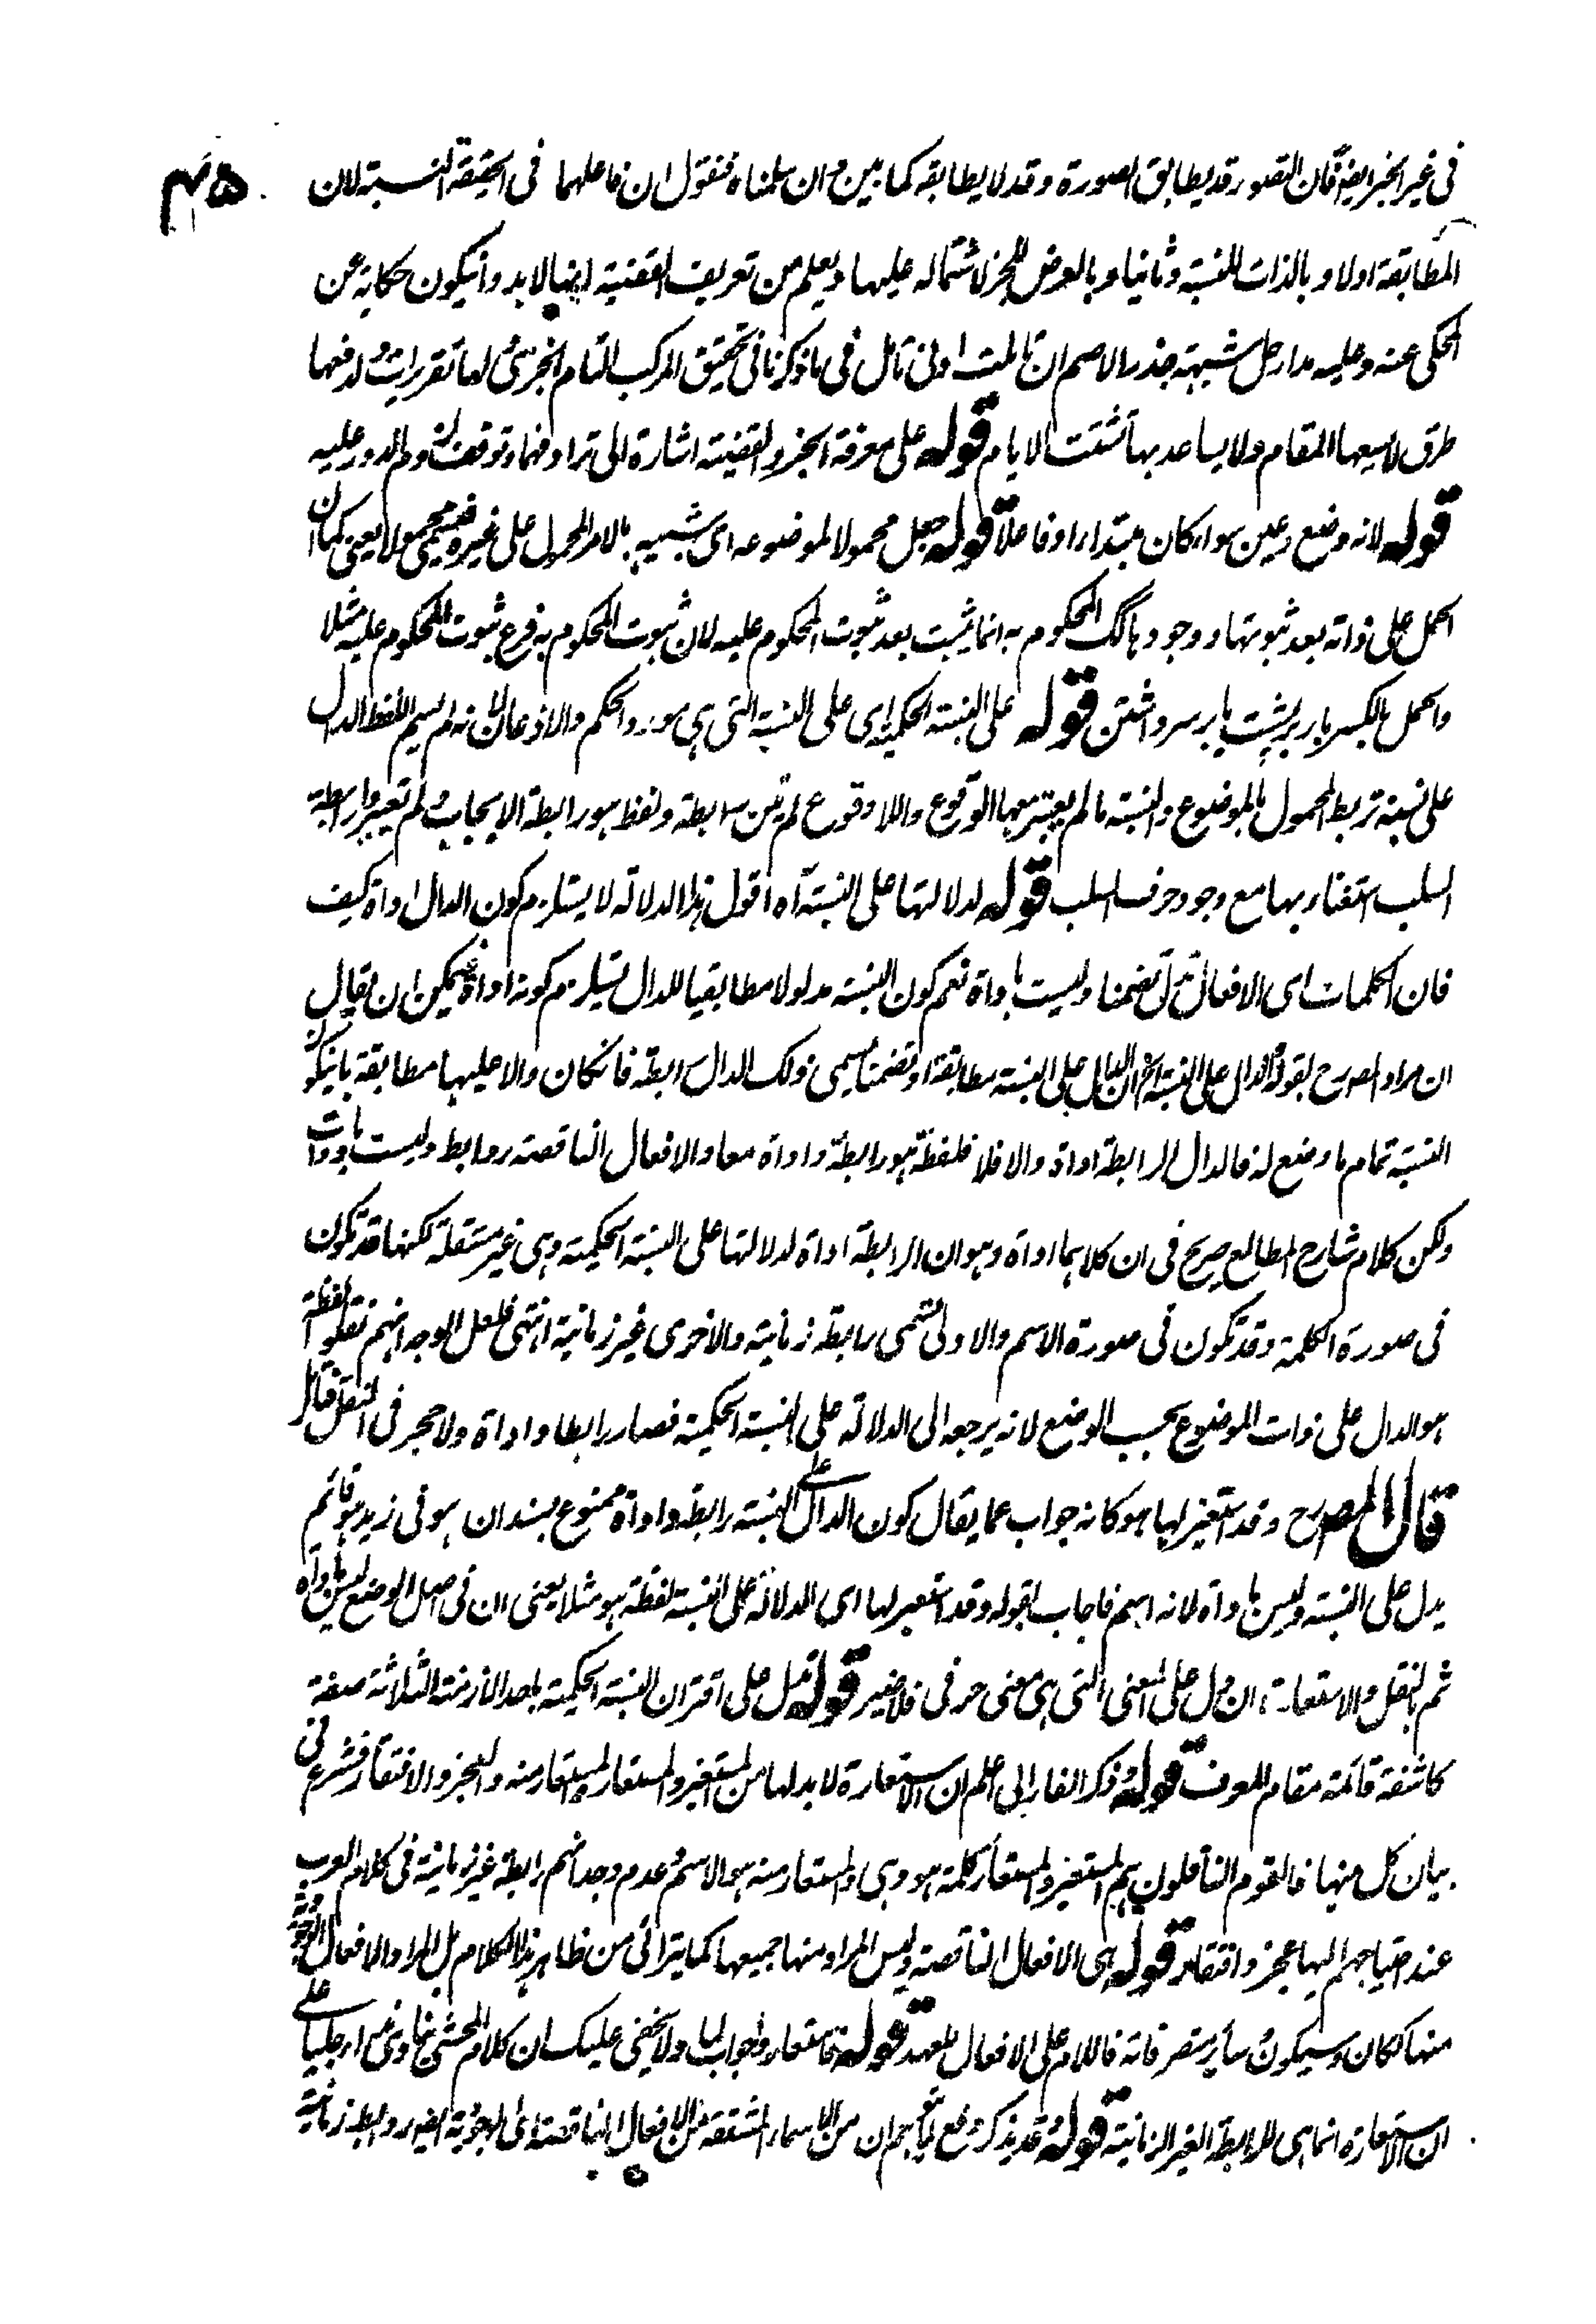 في غير الخبر ايضا فان التصور قد يطابق الصورة وقد لا يطابقه كما بين وان سلمناه فنقول ان فاعلهما في الحقيقة النسبة لان
المطابقة اولا وبالذات للنسبة وثانيا وبالعرض للخبر لاشتماله عليها ويعلم من تعريف القضية ايضا لا بد وان يكون حكاية عن
المحكي عنه وعليه مدار حل شبهة جذر الاصم ان تاملت ادنى تامل في ما ذكرنا في تحقيق المركب التام الخبري لها تقريرات ولدفعها
طرق لا يسعها المقام ولا يساعد بها تشتت الايام قوله على معرفة الخبر والقضية اشارة الى ترادفهما وتوقف ولم الدور عليه
قوله لانه وضع وعين سواء كان مبتدا او فاعلا قوله جعل محمولا لموضوعه اى شبيه بالامر المحمول على غيره فسمي محمولا يعني كما ان
الحمل على ذاته بعد ثبوتها ووجودها كك المحكوم به انما يثبت بعد ثبوت المحكوم عليه لان ثبوت المحكوم به فرع ثبوت المحكوم عليه مثلا
والحمل بالكسر بار بر پشت يا بر سر داشتن قوله على النسبة الحكمية اى على النسبة التي هي مورد الحكم والاذعان لانه لم يسم اللفظ الدال
على نسبة تربط المحمول بالموضوع والنسبة ما لم يعتبر معها الوقوع واللاوقوع لم تكن رابطة ولفظ هو رابطة الايجاب ولم تعتبر رابطة
السلب استغناء بها مع وجود حرف السلب قوله لدلالتها على النسبة آه اقول هذا الدلالة لا يستلزم كون الدال اداة كيف
فان الكلمات اى الافعال تدل تضمنا وليست باداة نعم كون النسبة مدلولا مطابقيا للدال يستلزم كونه اداة فيمكن ان يقال
ان مراد المصرح بقوله الدال على النسبة الخ ان الدال على النسبة مطابقة او تضمنا يسمى ذلك الدال رابطة فانكان دالا عليها مطابقة بان يكون
النسبة تمام ما وضع له فالدال الرابطة اداة والا فلا فلفظة هو رابطة واداة معا والافعال الناقصة روابط وليست بادوات
ولكن كلام شارح المطالع صريح في ان كلاهما اداة وهو ان الرابطة اداة لدلالتها على النسبة الحكمية وهي غير مستقلة لكنها قد تكون
في صورة الكلمة وقد تكون في صورة الاسم والاولى تسمى رابطة زمانية والاخرى غير زمانية انتهى فلعل الوجه انهم نقلوا لفظة
هو الدال على ذات الموضوع بحسب الوضع لانه يرجعه الى الدلالة على النسبة الحكمية فصار رابطا واداة ولا حجر في النقل فتامل
قال المصرح وقد استعير لها هو كانه جواب عما يقال كون الدال على النسبة رابطة واداة ممنوع بسند ان هو في زيد هو قائم
يدل على النسبة وليس باداة لانه اسم فاجاب بقوله وقد استعير لها اى للدلالة على النسبة لفظة هو مثلا يعني ان في اصل الوضع ليس باداة
ثم بالنقل والاستعارة ان دل على المعنى التي هي معنى حرفي فلا ضير قوله تدل على اقتران النسبة الحكمية باحد الازمنة الثلاثة صفة
كاشفة قائمة مقام المعرف قوله ذكر الفارابي اعلم ان الاستعارة لا بد لها من المستعير والمستعار والمستعار منه والعجز والافتقار فشرع في
بيان كل منها فالقوم الناقلون هم المستعير والمستعار كلمة هو وهي والمستعار منه هو الاسم وعدم وجدانهم رابطة غير زمانية في كلام العرب
عند احتياجهم اليها عجز وافتقار قوله هي الافعال الناقصة وليس المراد منها جميعها كما يتراءى من ظاهر هذا الكلام بل المراد الافعال الوجودية
منها ككان ويكون وسائر متصرفاته فاللام على الافعال للعهد قوله فاستعاروا جواب لما ولا يخفى عليك ان كلام المحشي ينادي نداء جليا على
ان الاستعارة انما هي للرابطة الغير الزمانية قوله وقد يذكر دفع لما يتوهم ان من الاسماء المشتقة من الافعال الناقصة اى الوجودية ايضا روابط زمانية